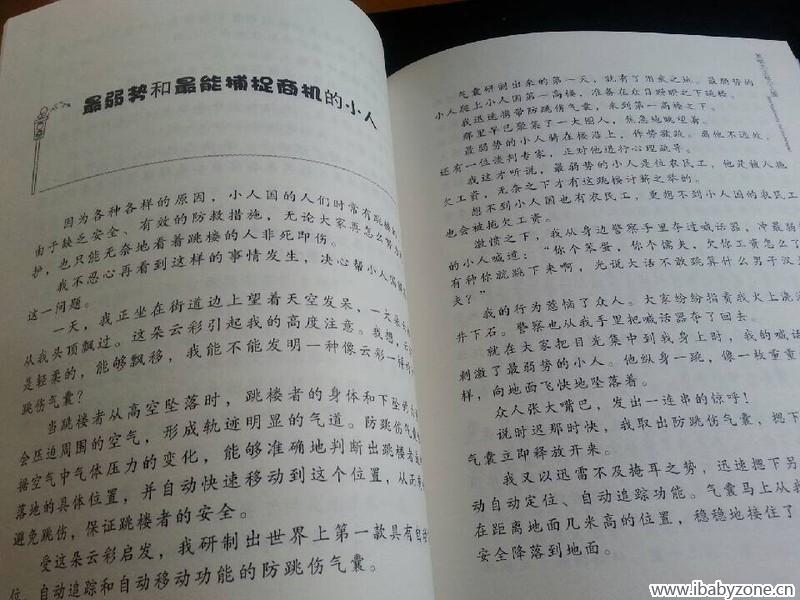 最弱势和最能捕捉商机的小人
因为各种各样的原因，小人国的人们时常有跳楼的
由于缺乏安全、有效的防救措施，无论大家再怎么努力
护，也只能无奈地看着跳楼的人非死即伤。
我不忍心再看到这样的事情发生，决心帮小人国
这一问题。
一天，我正坐在街道边上望着天空发呆，一大朵
从我头顶飘过。这朵云彩引起我的高度注意。我想，
是轻柔的，能够飘移，我能不能发明一种像云彩一样的
跳伤气囊？
当跳楼者从高空坠落时，跳楼者的身体和下坠的
会压迫周围的空气，形成轨迹明显的气道。防跳伤气囊
据空气中气体压力的变化，能够准确地判断出跳楼者
落地的具体位置，并自动快速移动到这个位置，从而
避免跳伤，保证跳楼者的安全。
受这朵云彩启发，我研制出世界上第一款具有自动
位、自动追踪和自动移动功能的防跳伤气囊。
气囊研制出来的第一天，就有了用武之地。最弱势的
小人爬上小人国第一高楼，准备在众目睽睽之下跳楼。
我迅速携带防跳伤气囊，来到第一高楼之下。
那里早已聚集了一大圈人，焦急地眺望着。
最弱势的小人骑在楼沿上，作势欲跳。离他不远处，
还有一位谈判专家，正对他进行心理疏导。
我这才听说，最弱势的小人是位农民工，他是被人拖
欠工资，无奈之下才有这跳楼讨薪之举的。
想不到小人国也有农民工，更想不到小人国的农民工
也会被拖欠工资。
激愤之下，我从身边警察手里夺过喊话器，冲最弱势
的小人喊道：“你个笨蛋，你个懦夫，欠你工资怎么了
有种你就跳下来啊，光说大话不敢跳算什么男子汉
夫？”
我的行为惹恼了众人。大家纷纷指责我火上浇油
井下石。警察也从我手里把喊话器夺了回去。
就在大家把目光集中到我身上时，我的喊话
刺激了最弱势的小人。他纵身一跳，像一枚重重
样，向地面飞快地坠落着。
众人张大嘴巴，发出一连串的惊呼！
说时迟那时快，我取出防跳伤气囊，摁下
气囊立即释放开来。
我又以迅雷不及掩耳之势，迅速摁下另
动自动定位、自动追踪功能。气囊马上从我
在距离地面几米高的位置，稳稳地接住了
安全降落到地面。
www.ibabyzone.cn